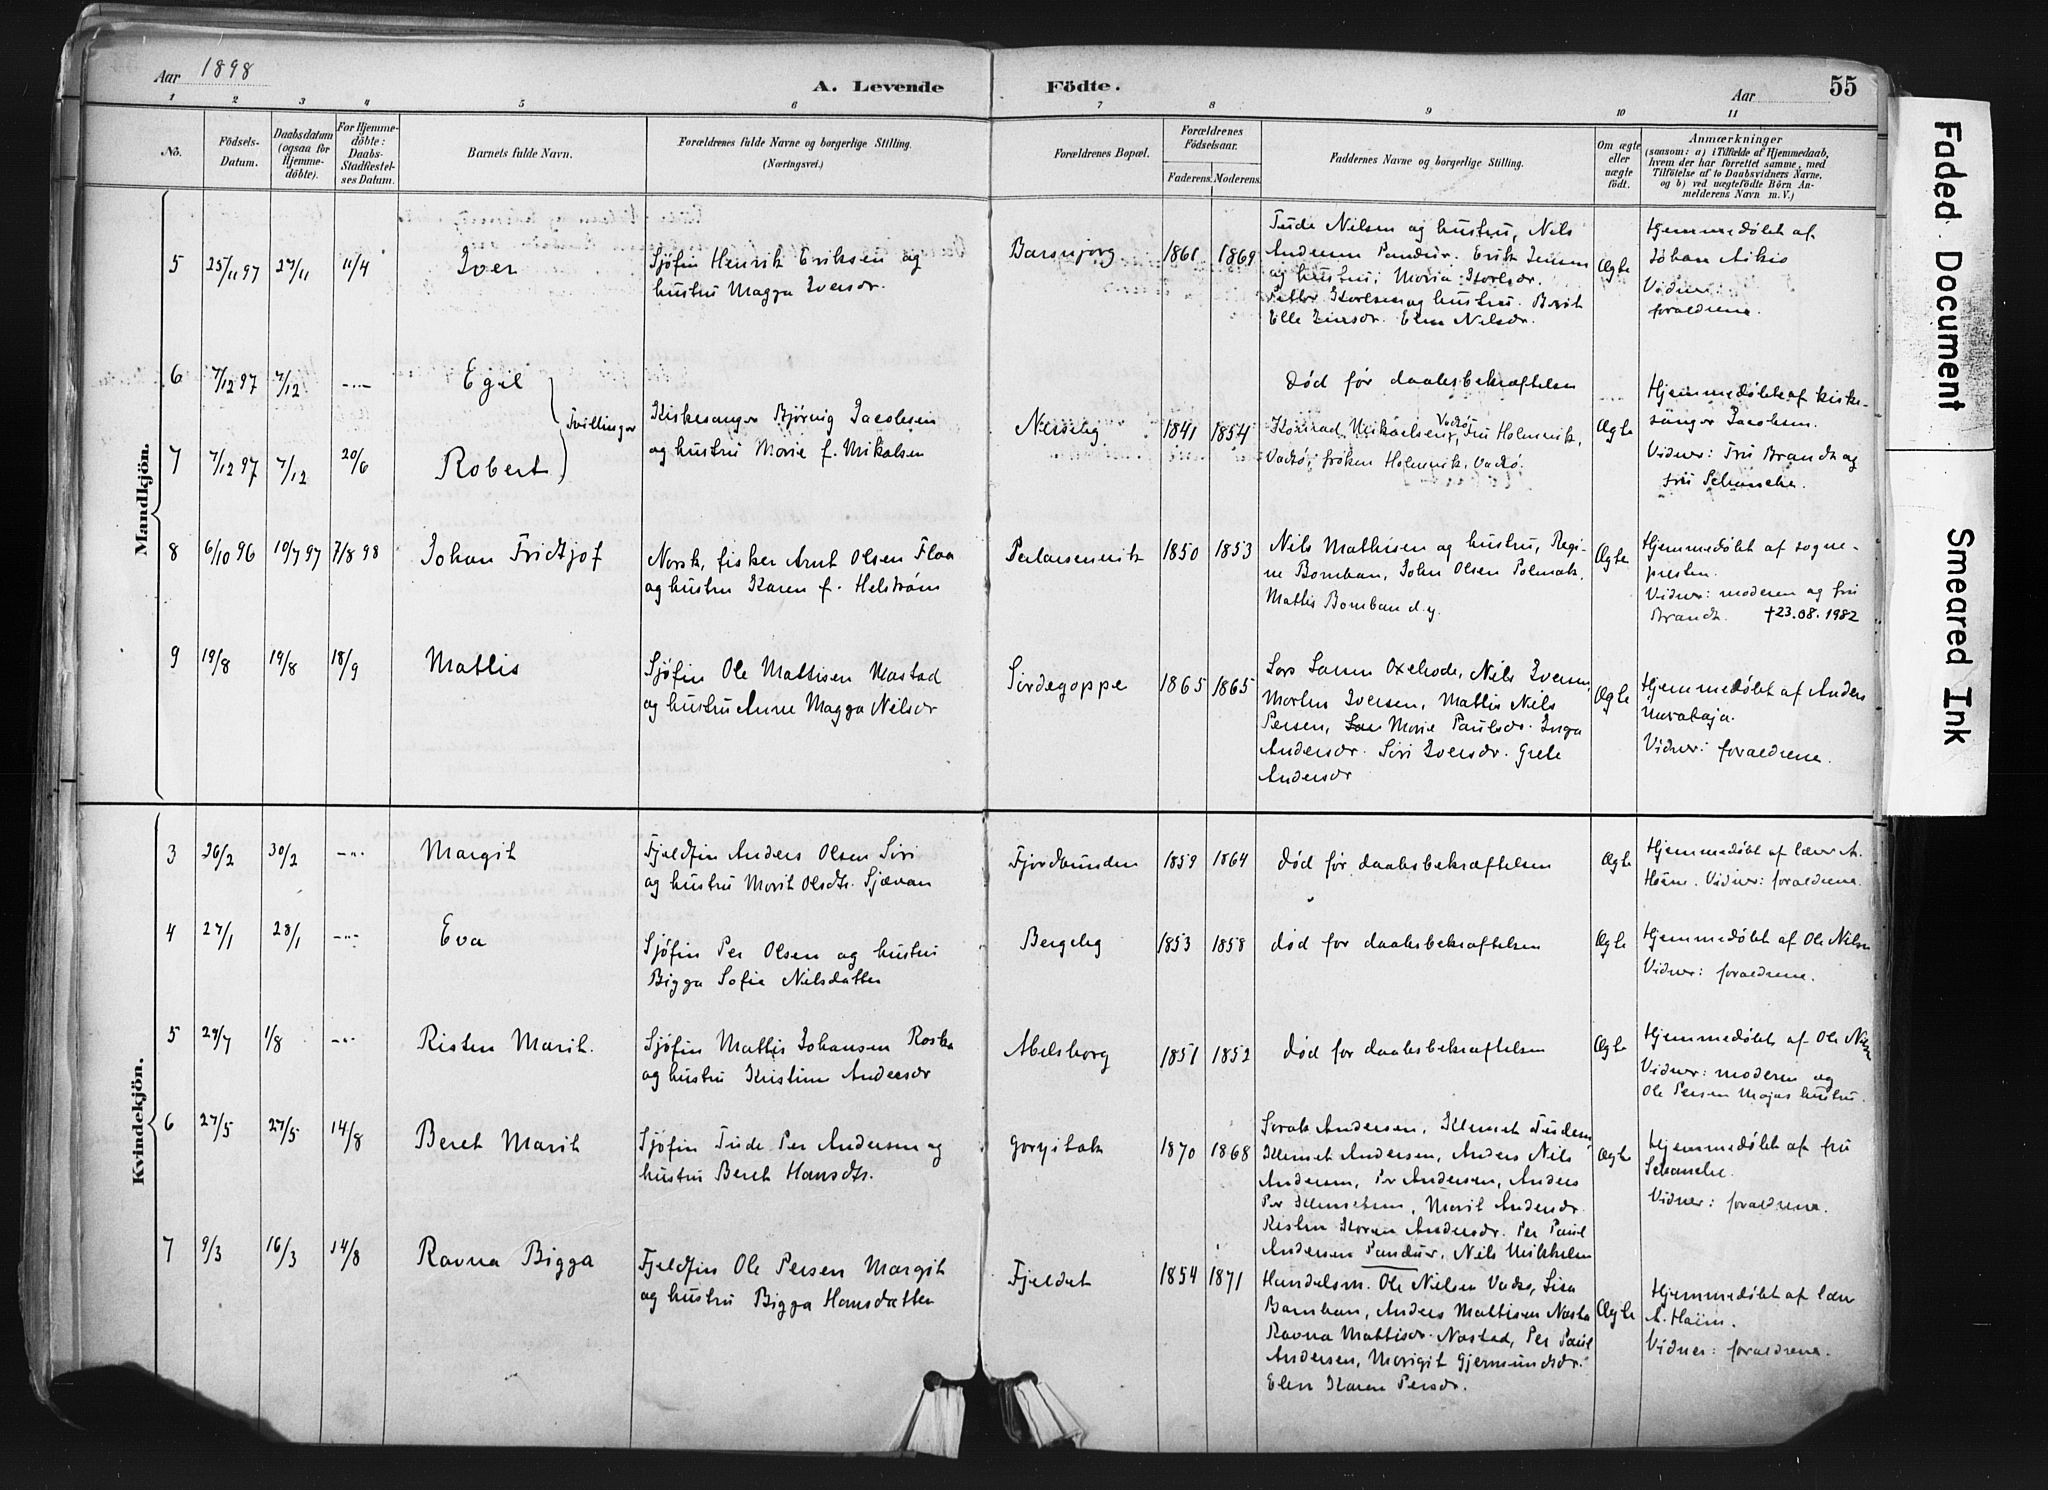 Aar 1898
A. Levende Födte.
Aar
55
1 2 3 4 5 6 7 8 9 10 11
Nö.
Födsels-Datum.
Daabsdatum (ogsaa for Hjemmedöbte).
For Hjemmedöbte: Daabs-Stadfæstelses Datum.
Barnets fulde Navn.
Forældrenes fulde Navne og borgerlige Stilling.
(Næringsvei.)
Forældrenes Bopæl.
Forældrenes Födselsaar.
Faderens. Moderens.
Faddernes Navne og borgerlige Stilling.
Om ægte eller uægte födt.
Anmærkninger
(saasom: a) i Tilfælde af Hjemmedaab, hvem der har forrettet samme, med Tilföielse af to Daabsvidners Navne, og b) ved uægtefödte Börn Anmelderens Navn m. V.)
Mandkjön.
5 25/11 97 27/11 11/4 Iver
Sjøfin Henrik Eriksen og
hustru Magga Iversdr.
1861 1869
Tude Nilsen og hustru, Nils
Andersen Pandur. Erik Iversen
og hustru; Maria
og hustru. Berit
Elle Iversdr. Elen Nilsdr.
Ægte
Hjemmedøbt af
Johan Aikio
Vidner:
forældrene.
6 7/12 97 7/12 -"- Egil
død før daabsbekræftelsen
7 7/12 97 7/12 20/6 Robert
Tvillinger
Kirkesanger Bjørnig Jacobsen
og hustru Marie f. Mikalsen
Nesseby
1841 1854
Konrad Mikaelsen, Vadsø, Fru Holmvik,
Vadsø, frøken Holmvik, Vadsø.
Ægte
Hjemmedøbt af kirke-
sanger Jacobsen.
Vidner: Fru Brandt og
fru Schanche.
8 6/10 96 10/7 97 7/8 98 Johan Fridtjof
Norsk, fisker Arnt Olsen Flaa
og hustru Karen f. Helstrøm
1850 1853
Nils Mathisen og hustru, Regi-
ne Bomban, John Olsen Polmak,
Mattis Bomban d.y.
Ægte
Hjemmedøbt af sogne-
presten.
Vidner: moderen og fru
Brandt. +23.08.1982
9 19/8 19/8 18/9 Mattis
Sjøfin Ole Mattisen Nastad
og hustru Anne Magga Nilsdr
Sirdegoppe
1865 1865
Lars Larsen Oxehode, Nils Iversen,
Morten Iversen, Mattis Nils
Persen, Marie Paulsdr. Inga
Andersdr. Siri Iversdr. Grete
Andersdr
Ægte
Hjemmedøbt af Anders
Vidner: forældrene.
Kvindekjön.
3 26/2 30/2 -"- Margit
Fjeldfin Anders Olsen Siri
og hustru Marit Olsdtr. Sjævan
Fjordbunden
1859 1864
død før daabsbekræftelsen
Ægte
Hjemmedøbt af lærer A.
Vidner: forældrene.
4 27/1 28/1 -"- Eva
Sjøfin Per Olsen og hustru
Bigga Sofie Nilsdatter
Bergeby
1853 1858
død før daabsbekræftelsen
Ægte
Hjemmedøbt af Ole Nilsen
Vidner: forældrene.
5 29/7 1/8 -"- Risten Marit.
Sjøfin Mattis Johansen Roska
og hustru Kristine Andersdr
Abelsborg
1851 1852
død før daabsbekræftelsen
Ægte
Hjemmedøbt af Ole Nilsen
Vidner: moderen og
Ole Persen Majas hustru.
6 27/5 27/5 14/8 Beret Marit
Sjøfin Tude Per Andersen og
hustru Beret Hansdtr.
1870 1868
Sarak Andersen, Klemet Tudesen
Klemet Andersen, Anders Nils
Andersen, Per Andersen, Anders
Per Klemetsen, Marit Andersdr.
Risten Karen Andersdr. Per Paul
Andersen Pandur, Nils Mikkelsen
Ægte
Hjemmedøbt af fru
Schanche.
Vidner: forældrene.
7 9/3 16/3 14/8 Ravna Bigga
Fjeldfin Ole Persen Margit
og hustru Bigga Hansdatter
Fjeldet
1854 1871
Handelsm. Ole Nielsen Vadsø, Lisa
Bomban, Anders Mattisen Nasta
Ravna Mattisdr. Nastad, Per Paul
Andersen, Marigit Gjermundsdr.
Elen Karen Persdr.
Ægte
Hjemmedøbt af lærer
A.
Vidner: forældrene.
Faded Document
Smeared Ink